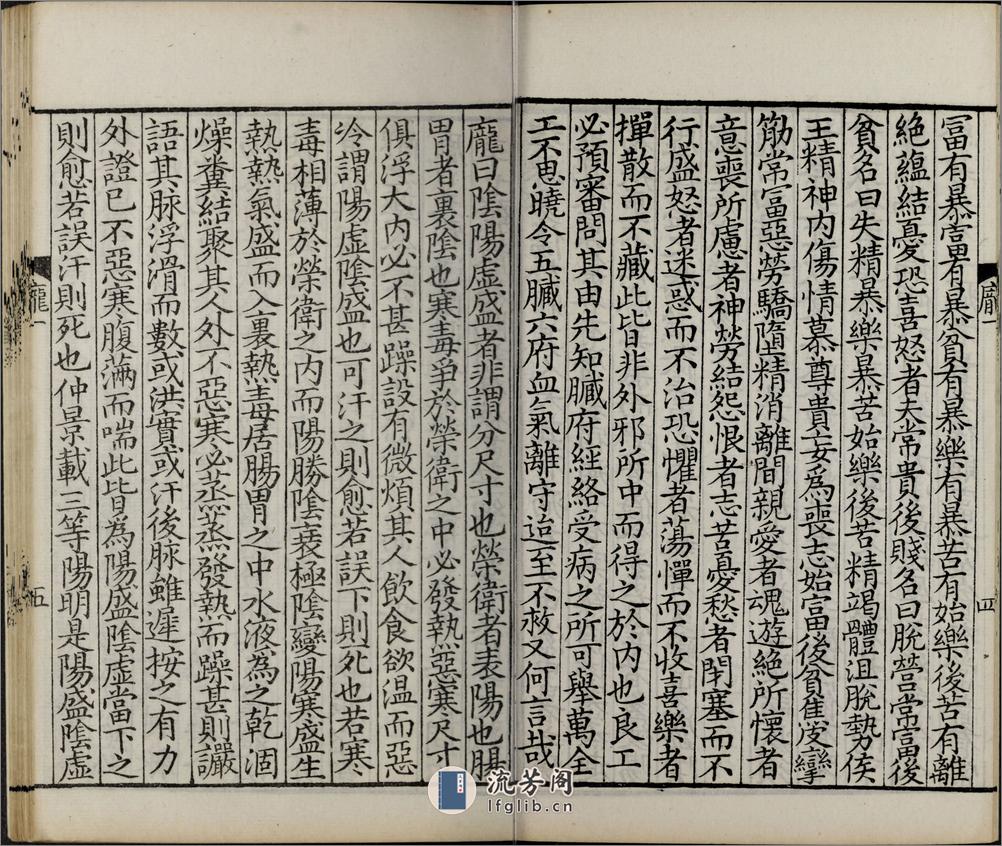 富有暴富有暴貧有暴樂有暴苦有始樂後苦有離
絶蘊結憂恐喜怒者夫常貴後賤名曰脫營常富後
貧名曰失精暴樂暴苦始樂後苦精竭體沮脫勢侯
王精神内傷情慕尊貴妄爲喪志始富後貧焦皮攣
筋常富惡勞驕墮精消離間親愛者魂遊絶所懷者
意喪所慮者神勞結怨恨者志苦憂愁者閉塞而不
行盛怒者迷惑而不治恐懼者蕩憚而不收喜樂者
撣散而不藏此皆非外邪所中而得之於内也良工
必預審問其由先知臟府經絡受病之所可舉萬全
工不思曉令五臟六府血氣離守迨至不救又何言哉
龐一
四
龐曰陰陽虛盛者非謂分尺寸也榮衛者表陽也腸
胃者裏陰也寒毒爭於榮衛之中必發熱惡寒尺寸
俱浮大内必不甚躁設有微煩其人飲食欲温而惡
冷謂陽虛陰盛也可汗之則愈若誤下則死也若寒
毒相薄於榮衛之内而陽勝陰衰極陰變陽寒盛生
熱熱氣盛而入裏熱毒居腸胃之中水液為之乾涸
燥糞結聚其人外不惡寒必蒸蒸發熱而躁甚則讝
語其脉浮滑而數或洪實或汗後脉雖遲按之有力
外證已不惡寒腹滿而喘此皆為陽盛陰虛當下之
則愈若誤汗則死也仲景載三等陽明是陽盛陰虛
龐一
五
流芳阁
lfglib.cn